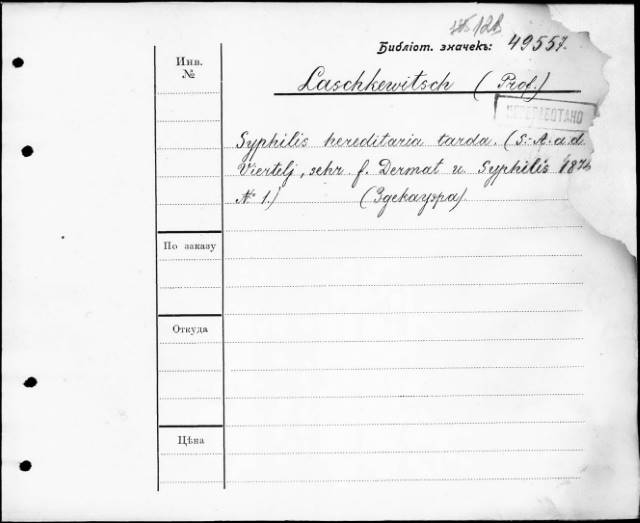 Библіот. значекъ: 49557.
Инв. №
Laschkewitsch (Prof.)
ПЕРЕРАБОТАНО
Syphilis hereditaria tarda. (S.-A. a. d.
Viertelj, schr. f. Dermat u. Syphilis 1878
№ 1.) (Здекауэра)
По заказу
Откуда
Цѣна